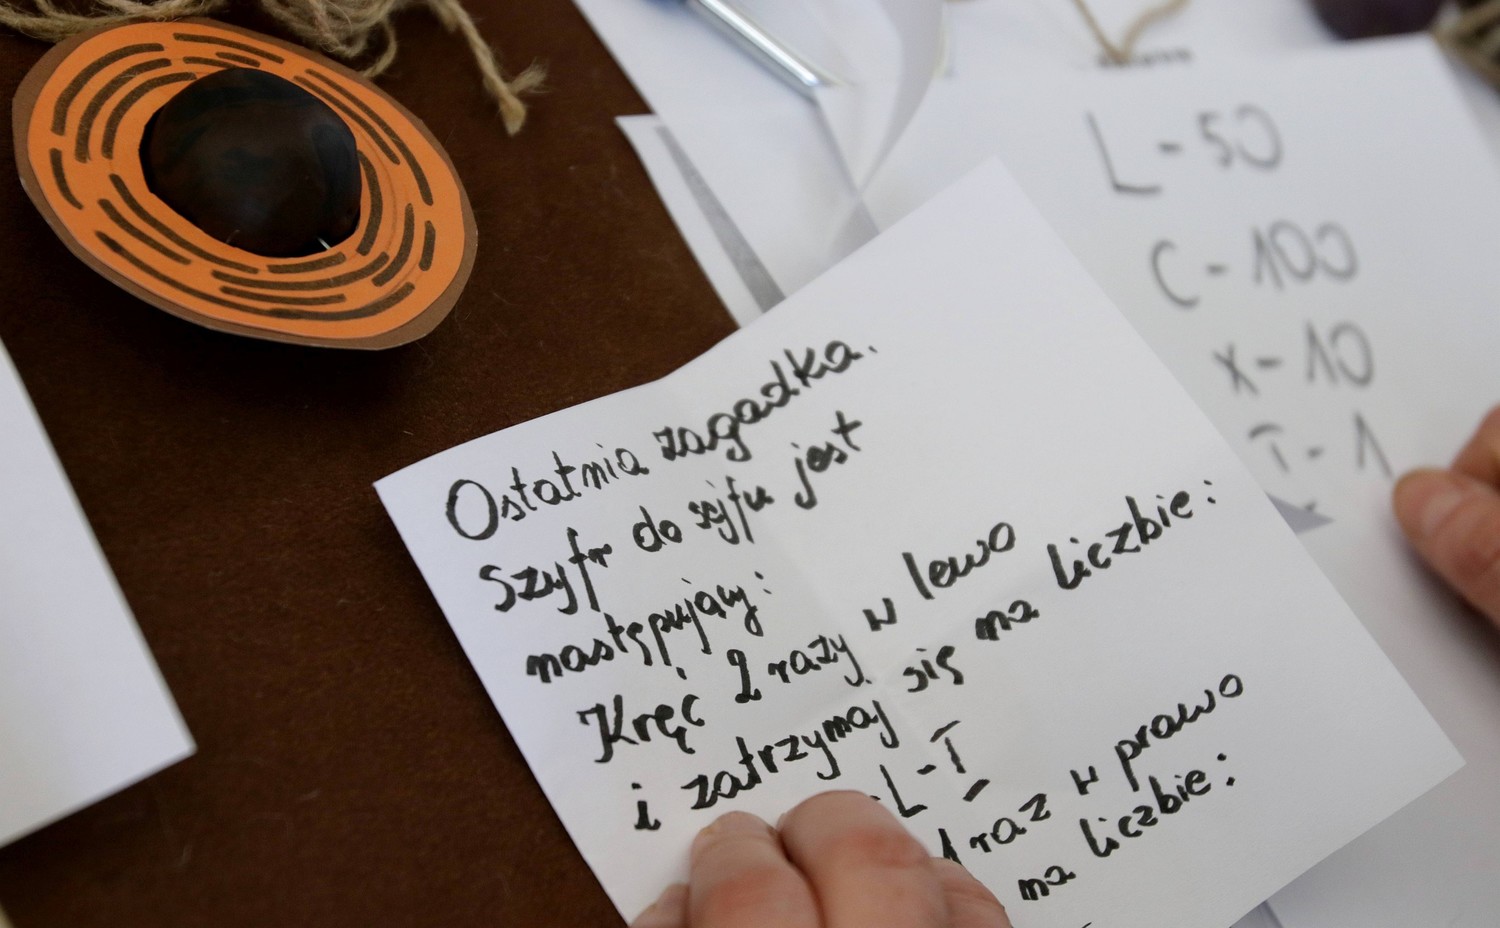 Ostatnia zagadka.
Szyfr do sejfu jest
następujący:
Kręć 2 razy w lewo
i zatrzymaj się na liczbie:
-L-I
1 raz w prawo
na liczbie:
L-50
C-100
X-10
I-1